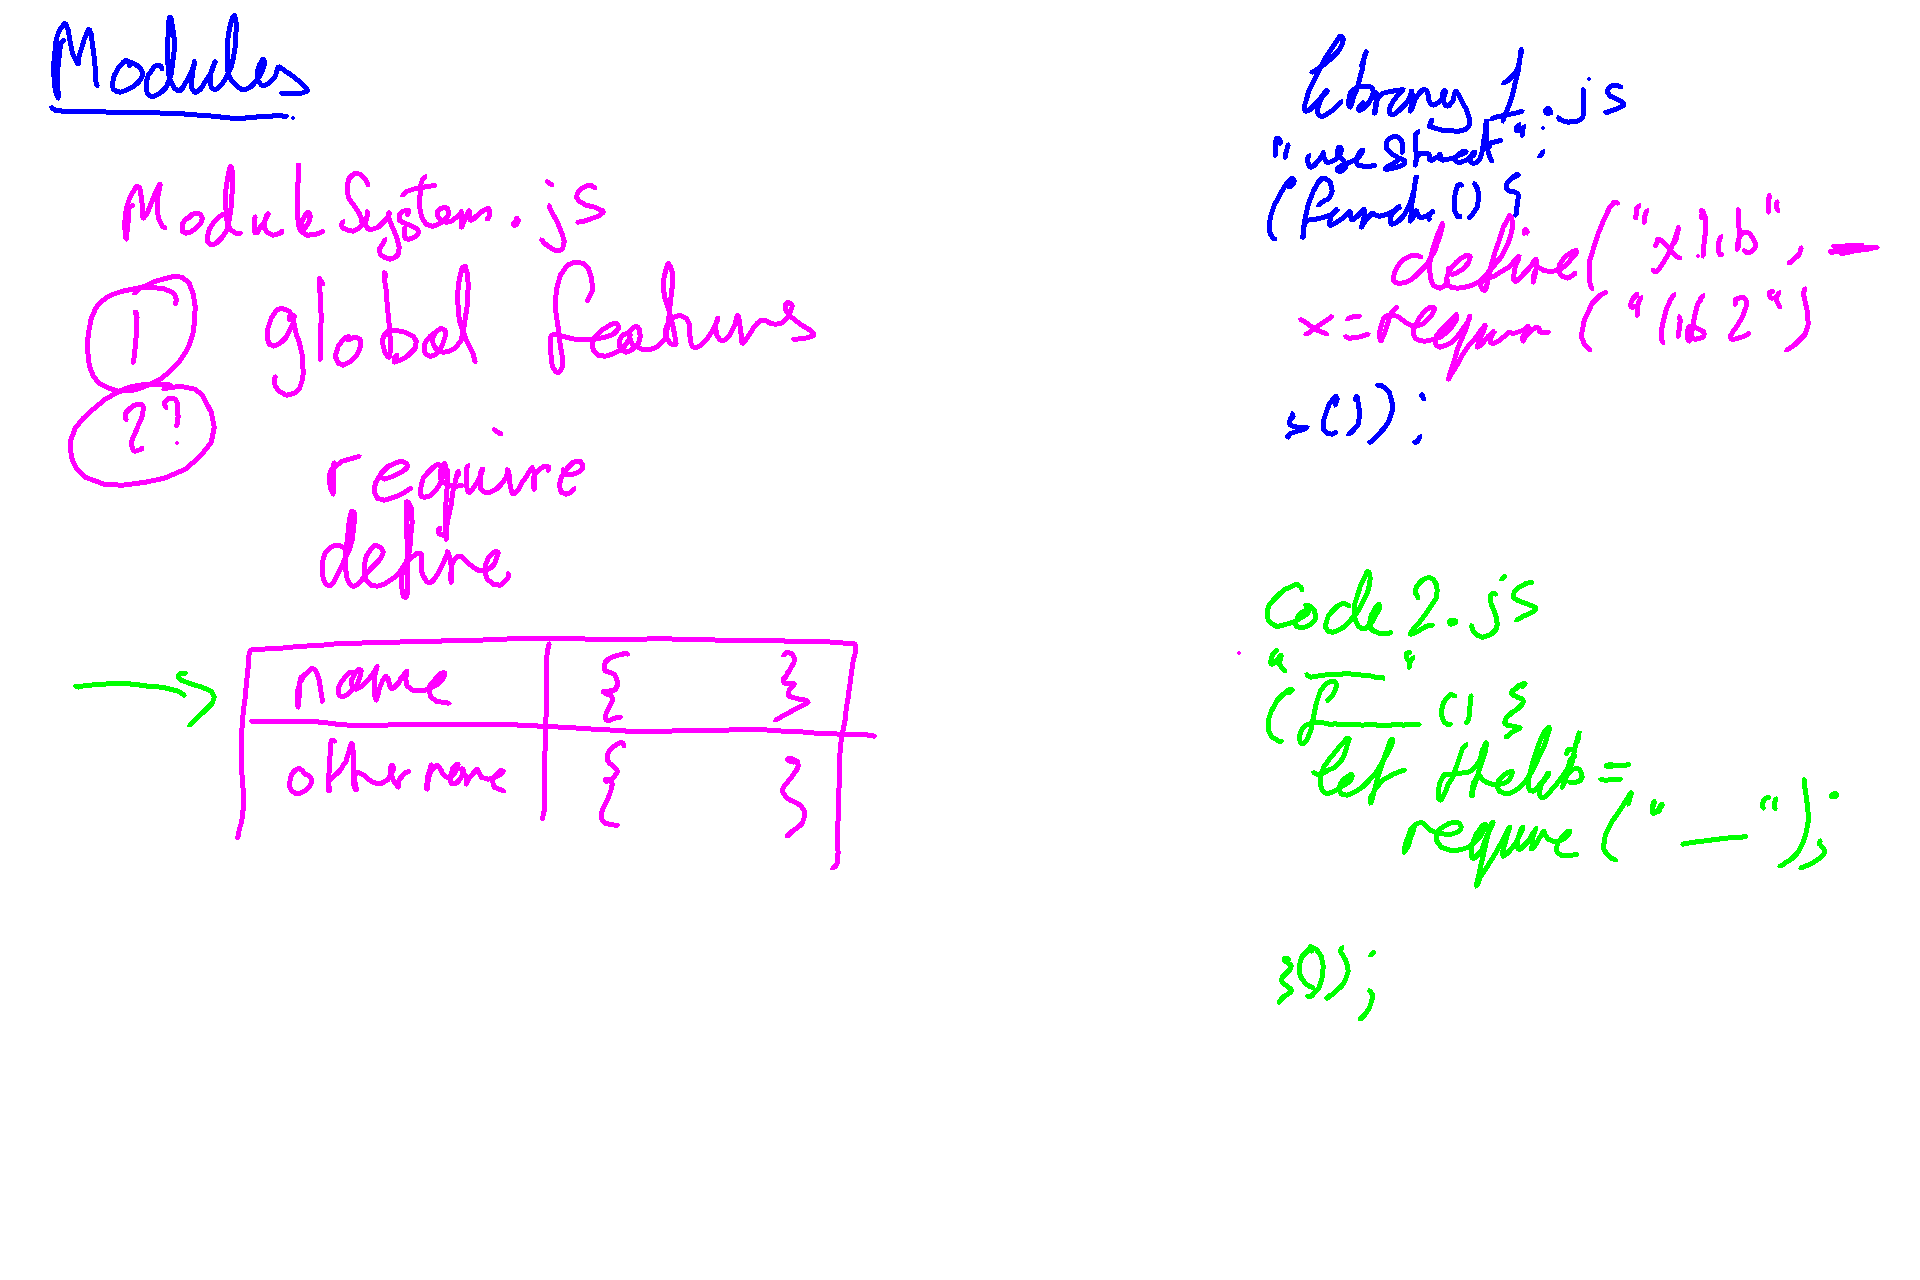 Modules
Module System.js
1 global features
2 ??
require
define
name { }
other name { }
Library 1.js
"use strict";
(function() {
define("xlib", —
x=require("lib2")
}());
Code 2.js
"—"
(f—() {
let thelib =
require("—");
}());